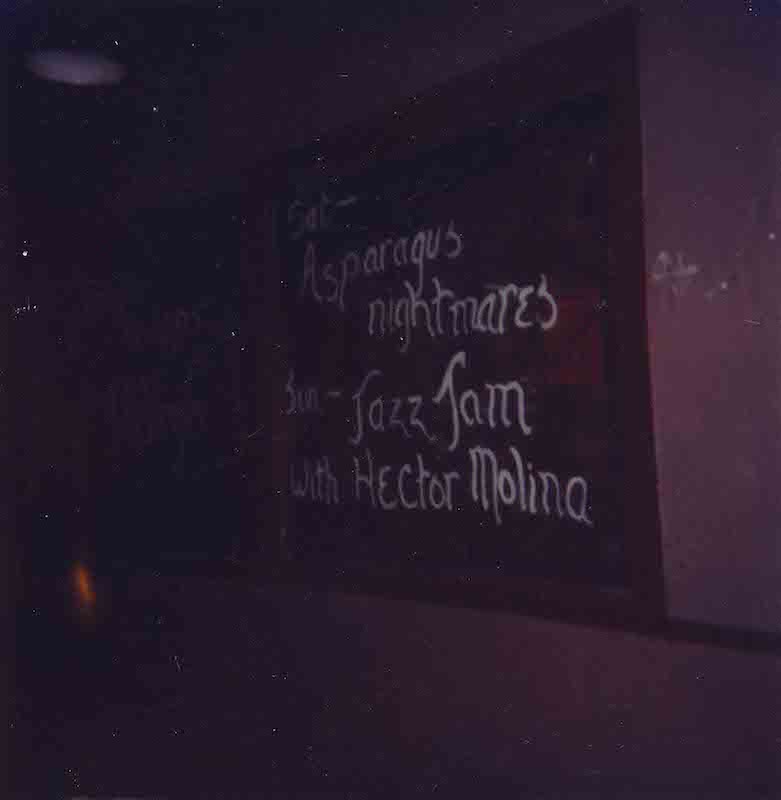 Sat-
Asparagus
nightmares
Sun- Jazz Jam
with Hector Molina